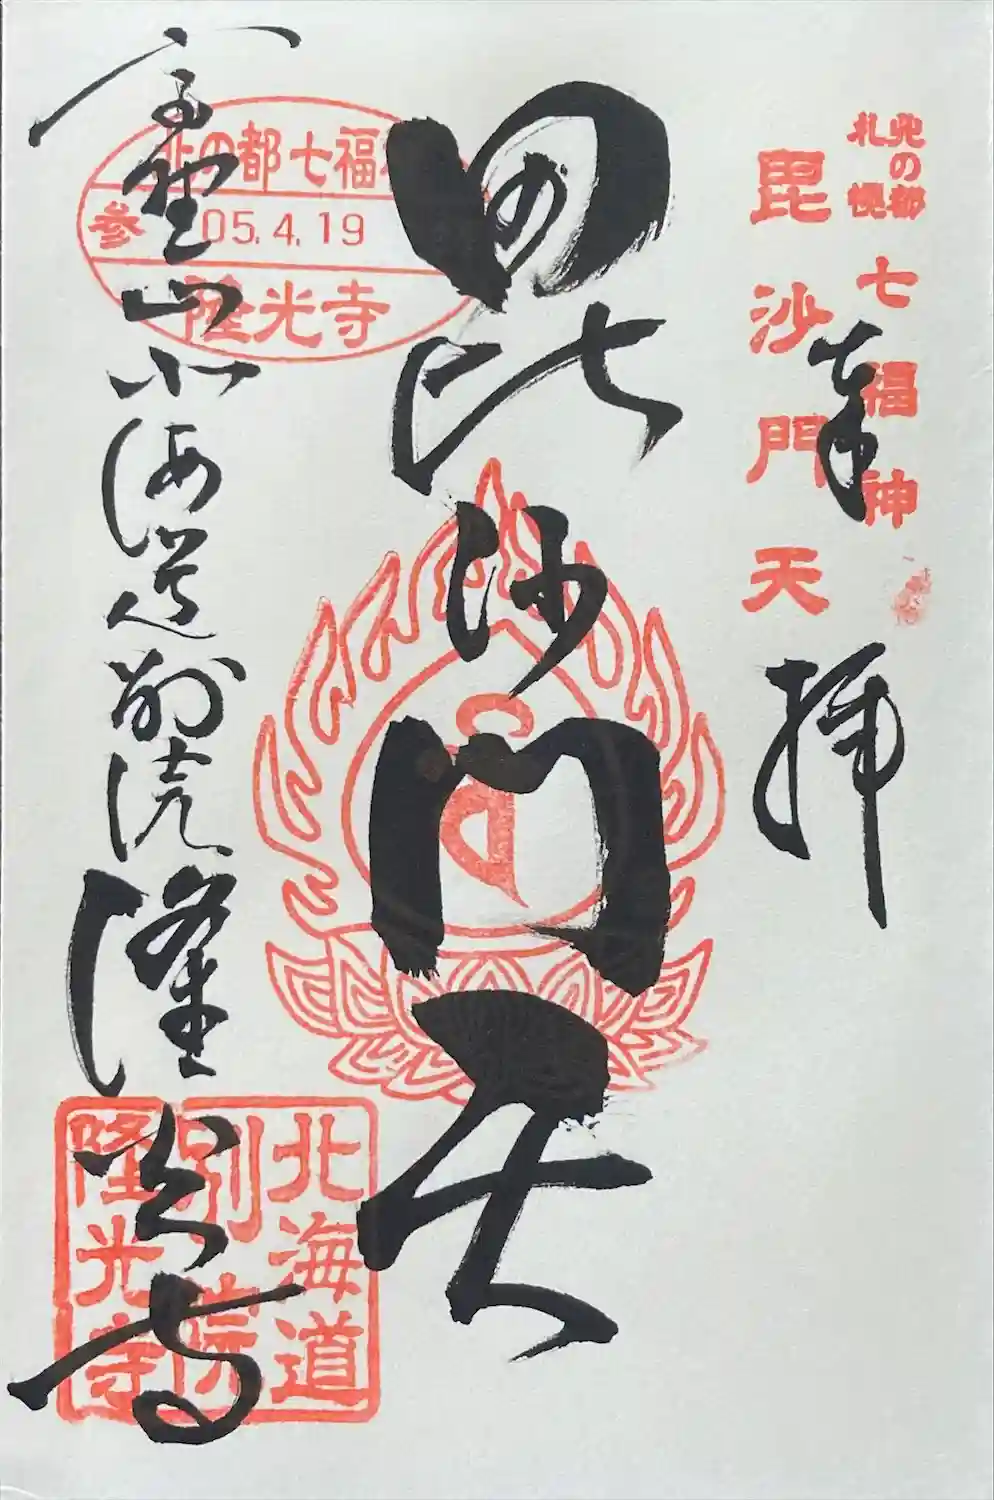 北の都
札幌
七福神
毘沙門天
奉拝
毘沙門天
北の都七福
参
05.4.19
隆光寺
高野山北海道別院隆光寺
北海道
別院
隆光寺